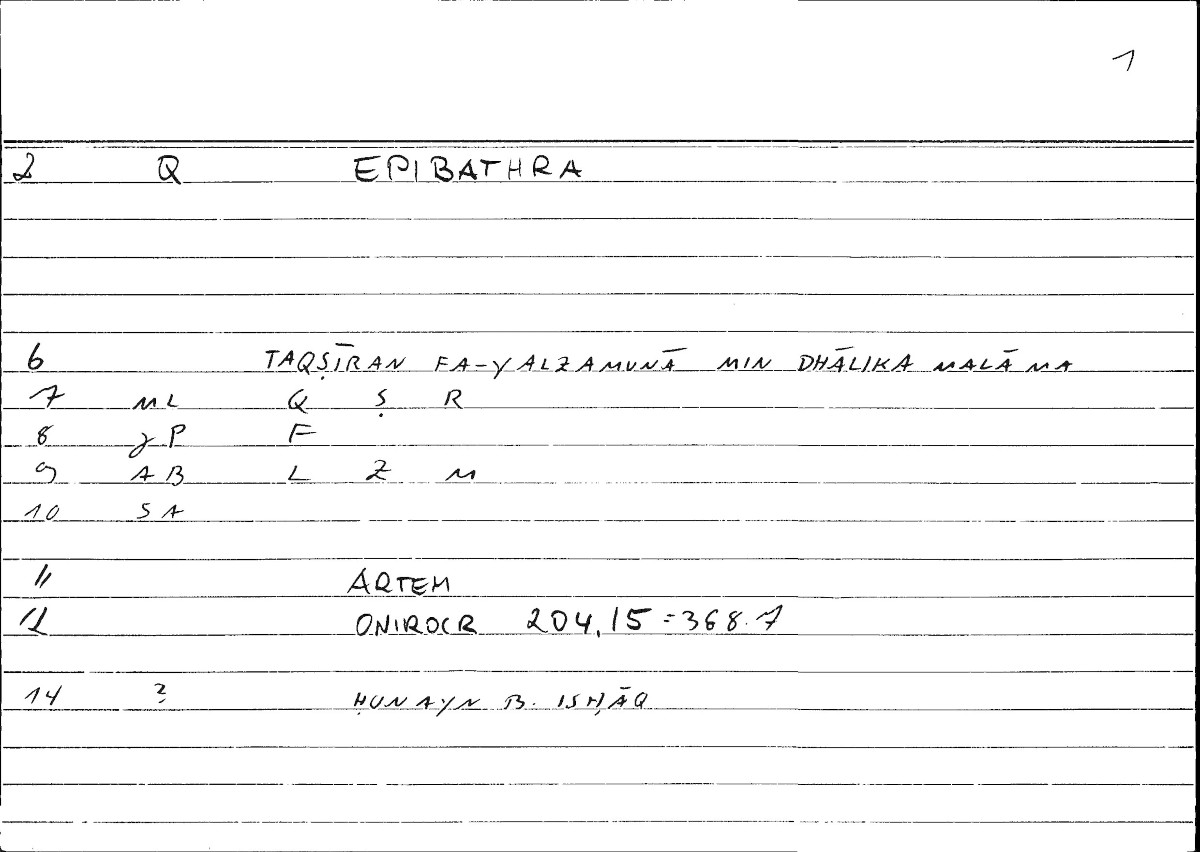 1
2 Q EPIBATHRA
6 TAQṢĪRAN FA-YALZAMUNĀ MIN DHĀLIKA MALĀMA
7 ML Q Ṣ R
8 γP F
9 AB L Z M
10 SA
11 ARTEM
12 ONIROCR 204,15=368.7
14 ḤUNAYN B. ISḤĀQ